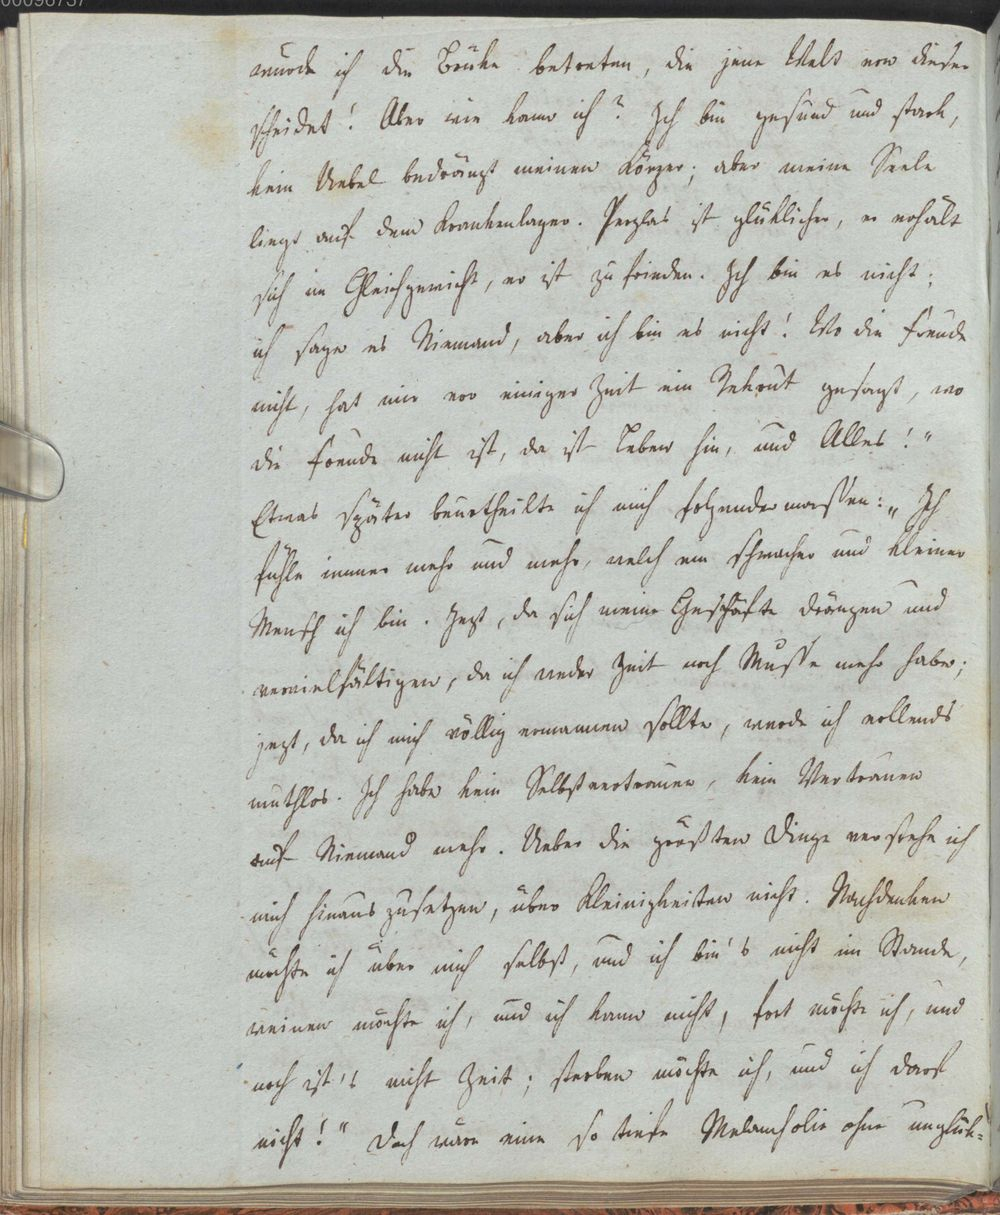 00096737
würde ich die Brüke betreten, die jene Welt von dieser
scheidet! Aber wie kann ich? Ich bin gesund und stark,
kein Uebel bedrängt meinen Körper; aber meine Seele
liegt auf dem Krankenlager. Perglas ist glüklicher, er erhält
sich im Gleichgewicht, er ist zufrieden. Ich bin es nicht;
ich sage es Niemand, aber ich bin es nicht! Wo die Freude
nicht, hat mir vor einiger Zeit ein Rekrut gesagt, wo
die Freude nicht ist, da ist Leben hin, und Alles!"
Etwas später beurtheilte ich mich folgendermassen: „Ich
fühle immer mehr und mehr, welch ein schwacher und kleiner
Mensch ich bin. Jezt, da sich meine Geschäfte drängen und
vervielfältigen, da ich weder Zeit noch Musse mehr habe;
jezt, da ich mich völlig ermannen sollte, werde ich vollends
muthlos. Ich habe kein Selbstvertrauen, kein Vertrauen
auf Niemand mehr. Ueber die größten Dinge verstehe ich
mich hinauszusetzen, über Kleinigkeiten nicht. Nachdenken
möchte ich über mich selbst, und ich bin's nicht im Stande,
weinen möchte ich, und ich kann nicht, fort möchte ich, und
noch ist's nicht Zeit; sterben möchte ich, und ich darf
nicht!" Doch wäre eine so tiefe Melancholie ohne unglük=